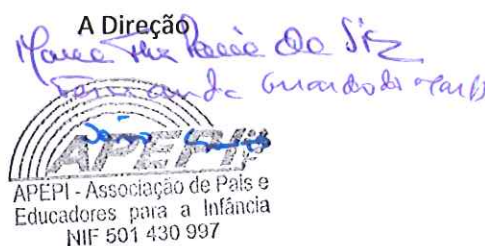 A Direção
Maria
Fernanda
APEPI
APEPI - Associação de Pais e
Educadores para a Infância
NIF 501 430 997